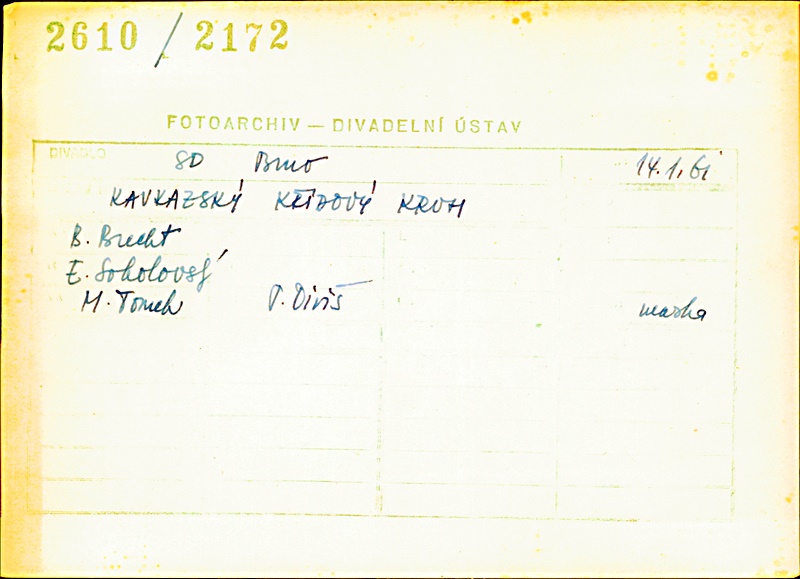 2610 / 2172
FOTOARCHIV — DIVADELNÍ ÚSTAV
DIVADLO
SD Brno 14.1.61
KAVKAZSKÝ KŘÍDOVÝ KRUH
B. Brecht
E. Sokolovský
M. Tomek P. Diviš maska